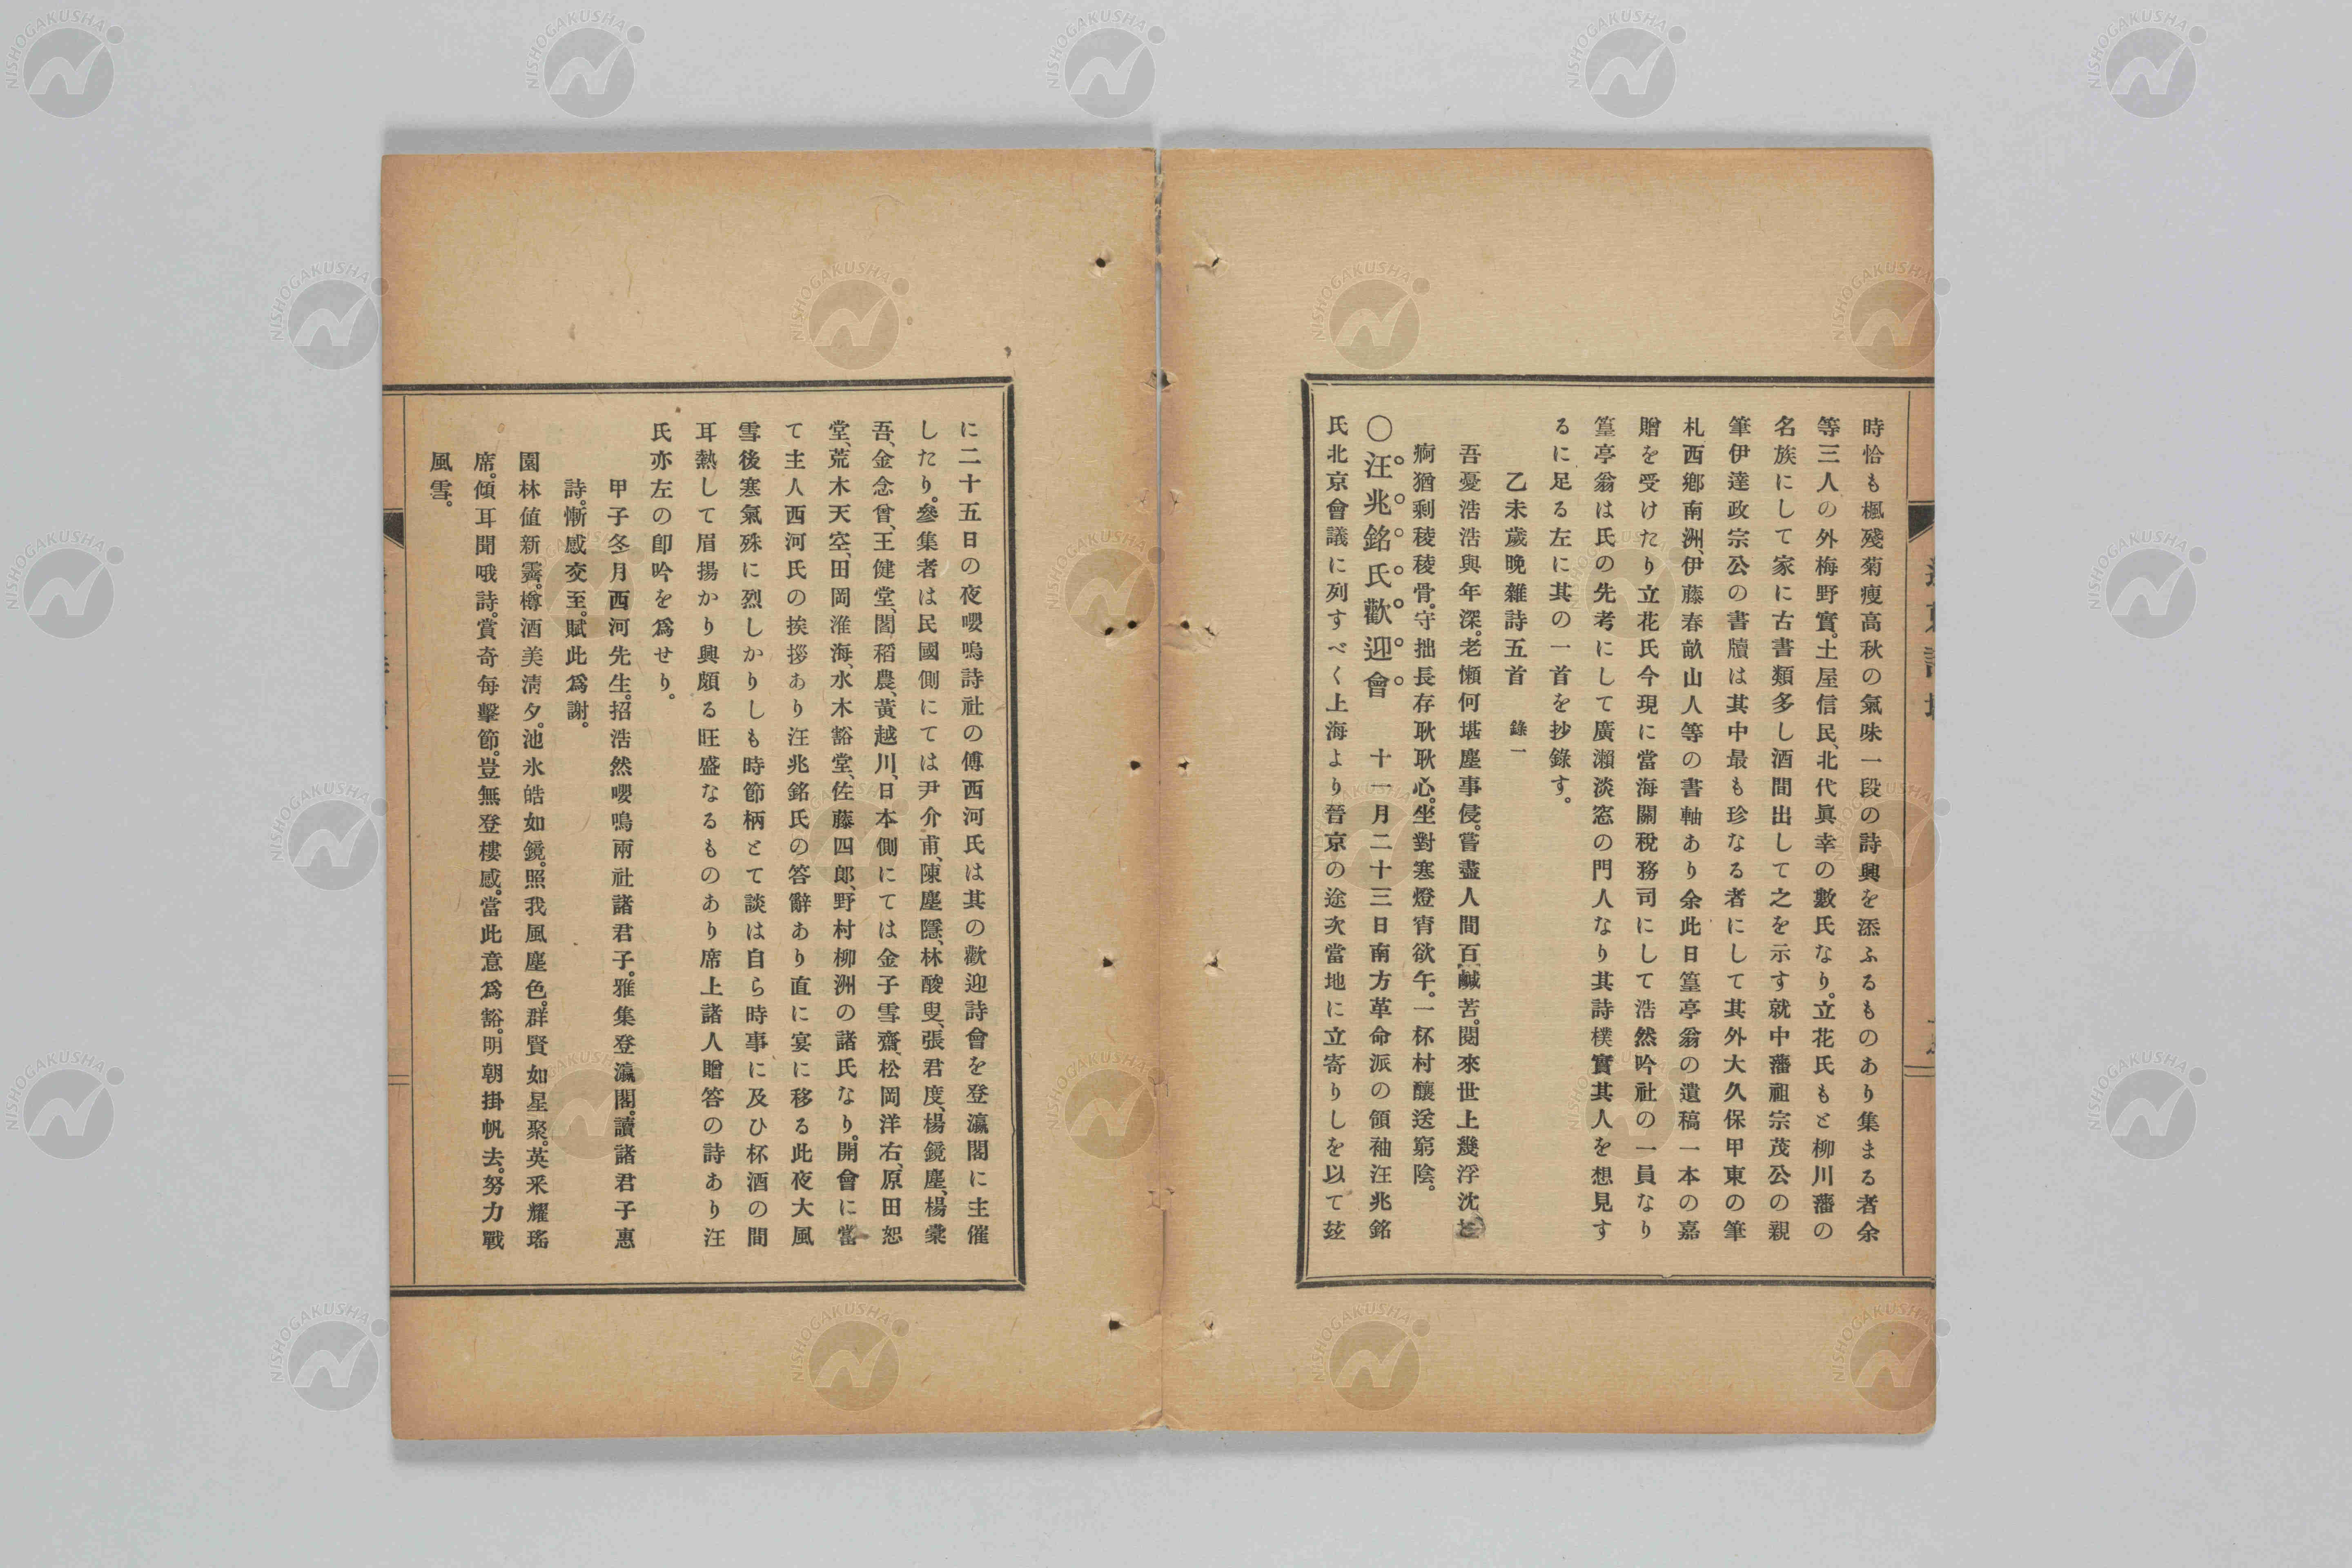 時恰も楓殘菊瘦高秋の氣味一段の詩興を添ふるものあり集まる者余
等三人の外梅野實。土屋信民、北代眞幸の數氏なり。立花氏もと柳川藩の
名族にして家に古書類多し酒間出して之を示す就中藩祖宗茂公の親
筆伊達政宗公の書牘は其中最も珍なる者にして其外大久保甲東の筆
札西鄉南洲、伊藤春畝山人等の書軸あり余此日篁亭翁の遺稿一本の嘉
贈を受けたり立花氏今現に當海關稅務司にして浩然吟社の一員なり
篁亭翁は氏の先考にして廣瀨淡窓の門人なり其詩樸實其人を想見す
るに足る左に其の一首を抄錄す。
乙未歲晚雜詩五首 錄一
吾憂浩浩與年深。老懶何堪塵事侵。嘗盡人間百鹹苦。閱來世上幾浮沈。
痾猶剩稜稜骨。守拙長存耿耿心。坐對寒燈宵欲午。一杯村釀送窮陰。
〇汪兆銘氏歡迎會 十一月二十三日南方革命派の領袖汪兆銘
氏北京會議に列すべく上海より晉京の途次當地に立寄りしを以て玆
に二十五日の夜嚶鳴詩社の傅西河氏は其の歡迎詩會を登瀛閣に主催
したり。參集者は民國側にては尹介甫、陳塵隱、林酸叟、張君度、楊鏡塵、楊棠
吾、金念曾、王健堂、閻稻農、黃越川、日本側にては金子雪齋、松岡洋右、原田恕
堂、荒木天空、田岡淮海、水木豁堂、佐藤四郞、野村柳洲の諸氏なり。開會に當
て主人西河氏の挨拶あり汪兆銘氏の答辭あり直に宴に移る此夜大風
雪後寒氣殊に烈しかりしも時節柄とて談は自ら時事に及ひ杯酒の間
耳熱して眉揚かり興頗る旺盛なるものあり席上諸人贈答の詩あり汪
氏亦左の卽吟を爲せり。
甲子冬月西河先生。招浩然嚶鳴兩社諸君子。雅集登瀛閣。讀諸君子惠
詩。慚感交至。賦此爲謝。
園林値新霽。樽酒美淸夕。池氷皓如鏡。照我風塵色。群賢如星聚。英釆耀瑤
席。傾耳聞哦詩。賞奇每擊節。豈無登樓感。當此意爲豁。明朝掛帆去。努力戰
風雪。
NISHOGAKUSHA